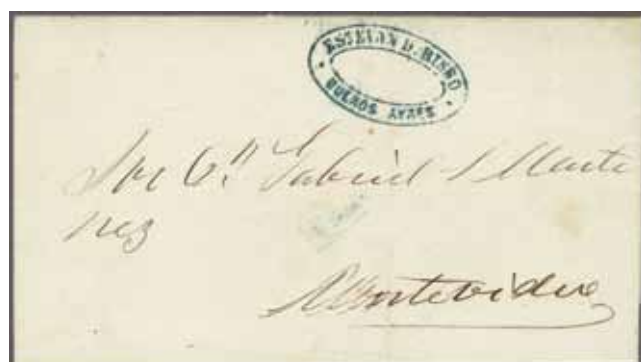 ESTEVAN D. RISSO
BUENOS AYRES
Sor Dn Gabriel Marti
nez
Montevideo